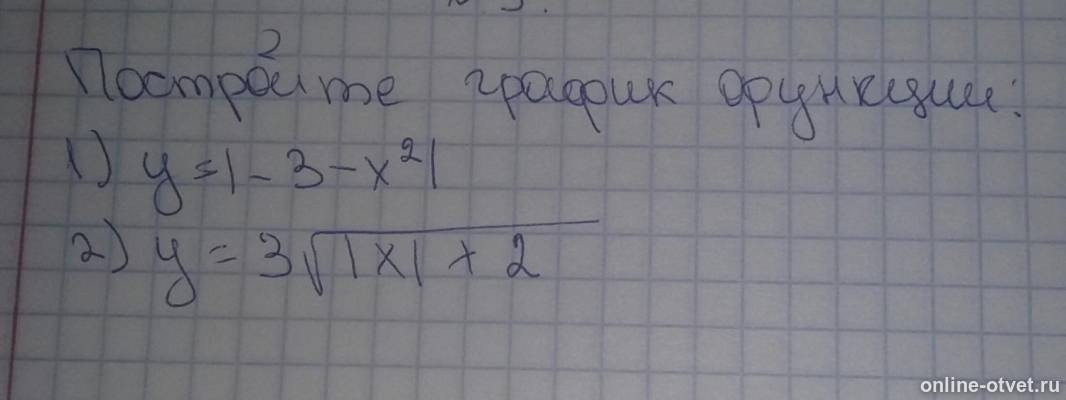 2
Постройте график функции:
1) y=|-3-x²|
2) y = 3√|x| + 2
online-otvet.ru